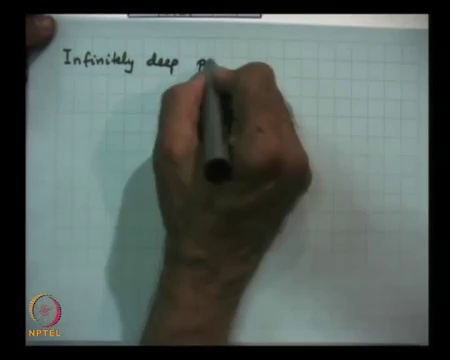 Infinitely deep p
NPTEL